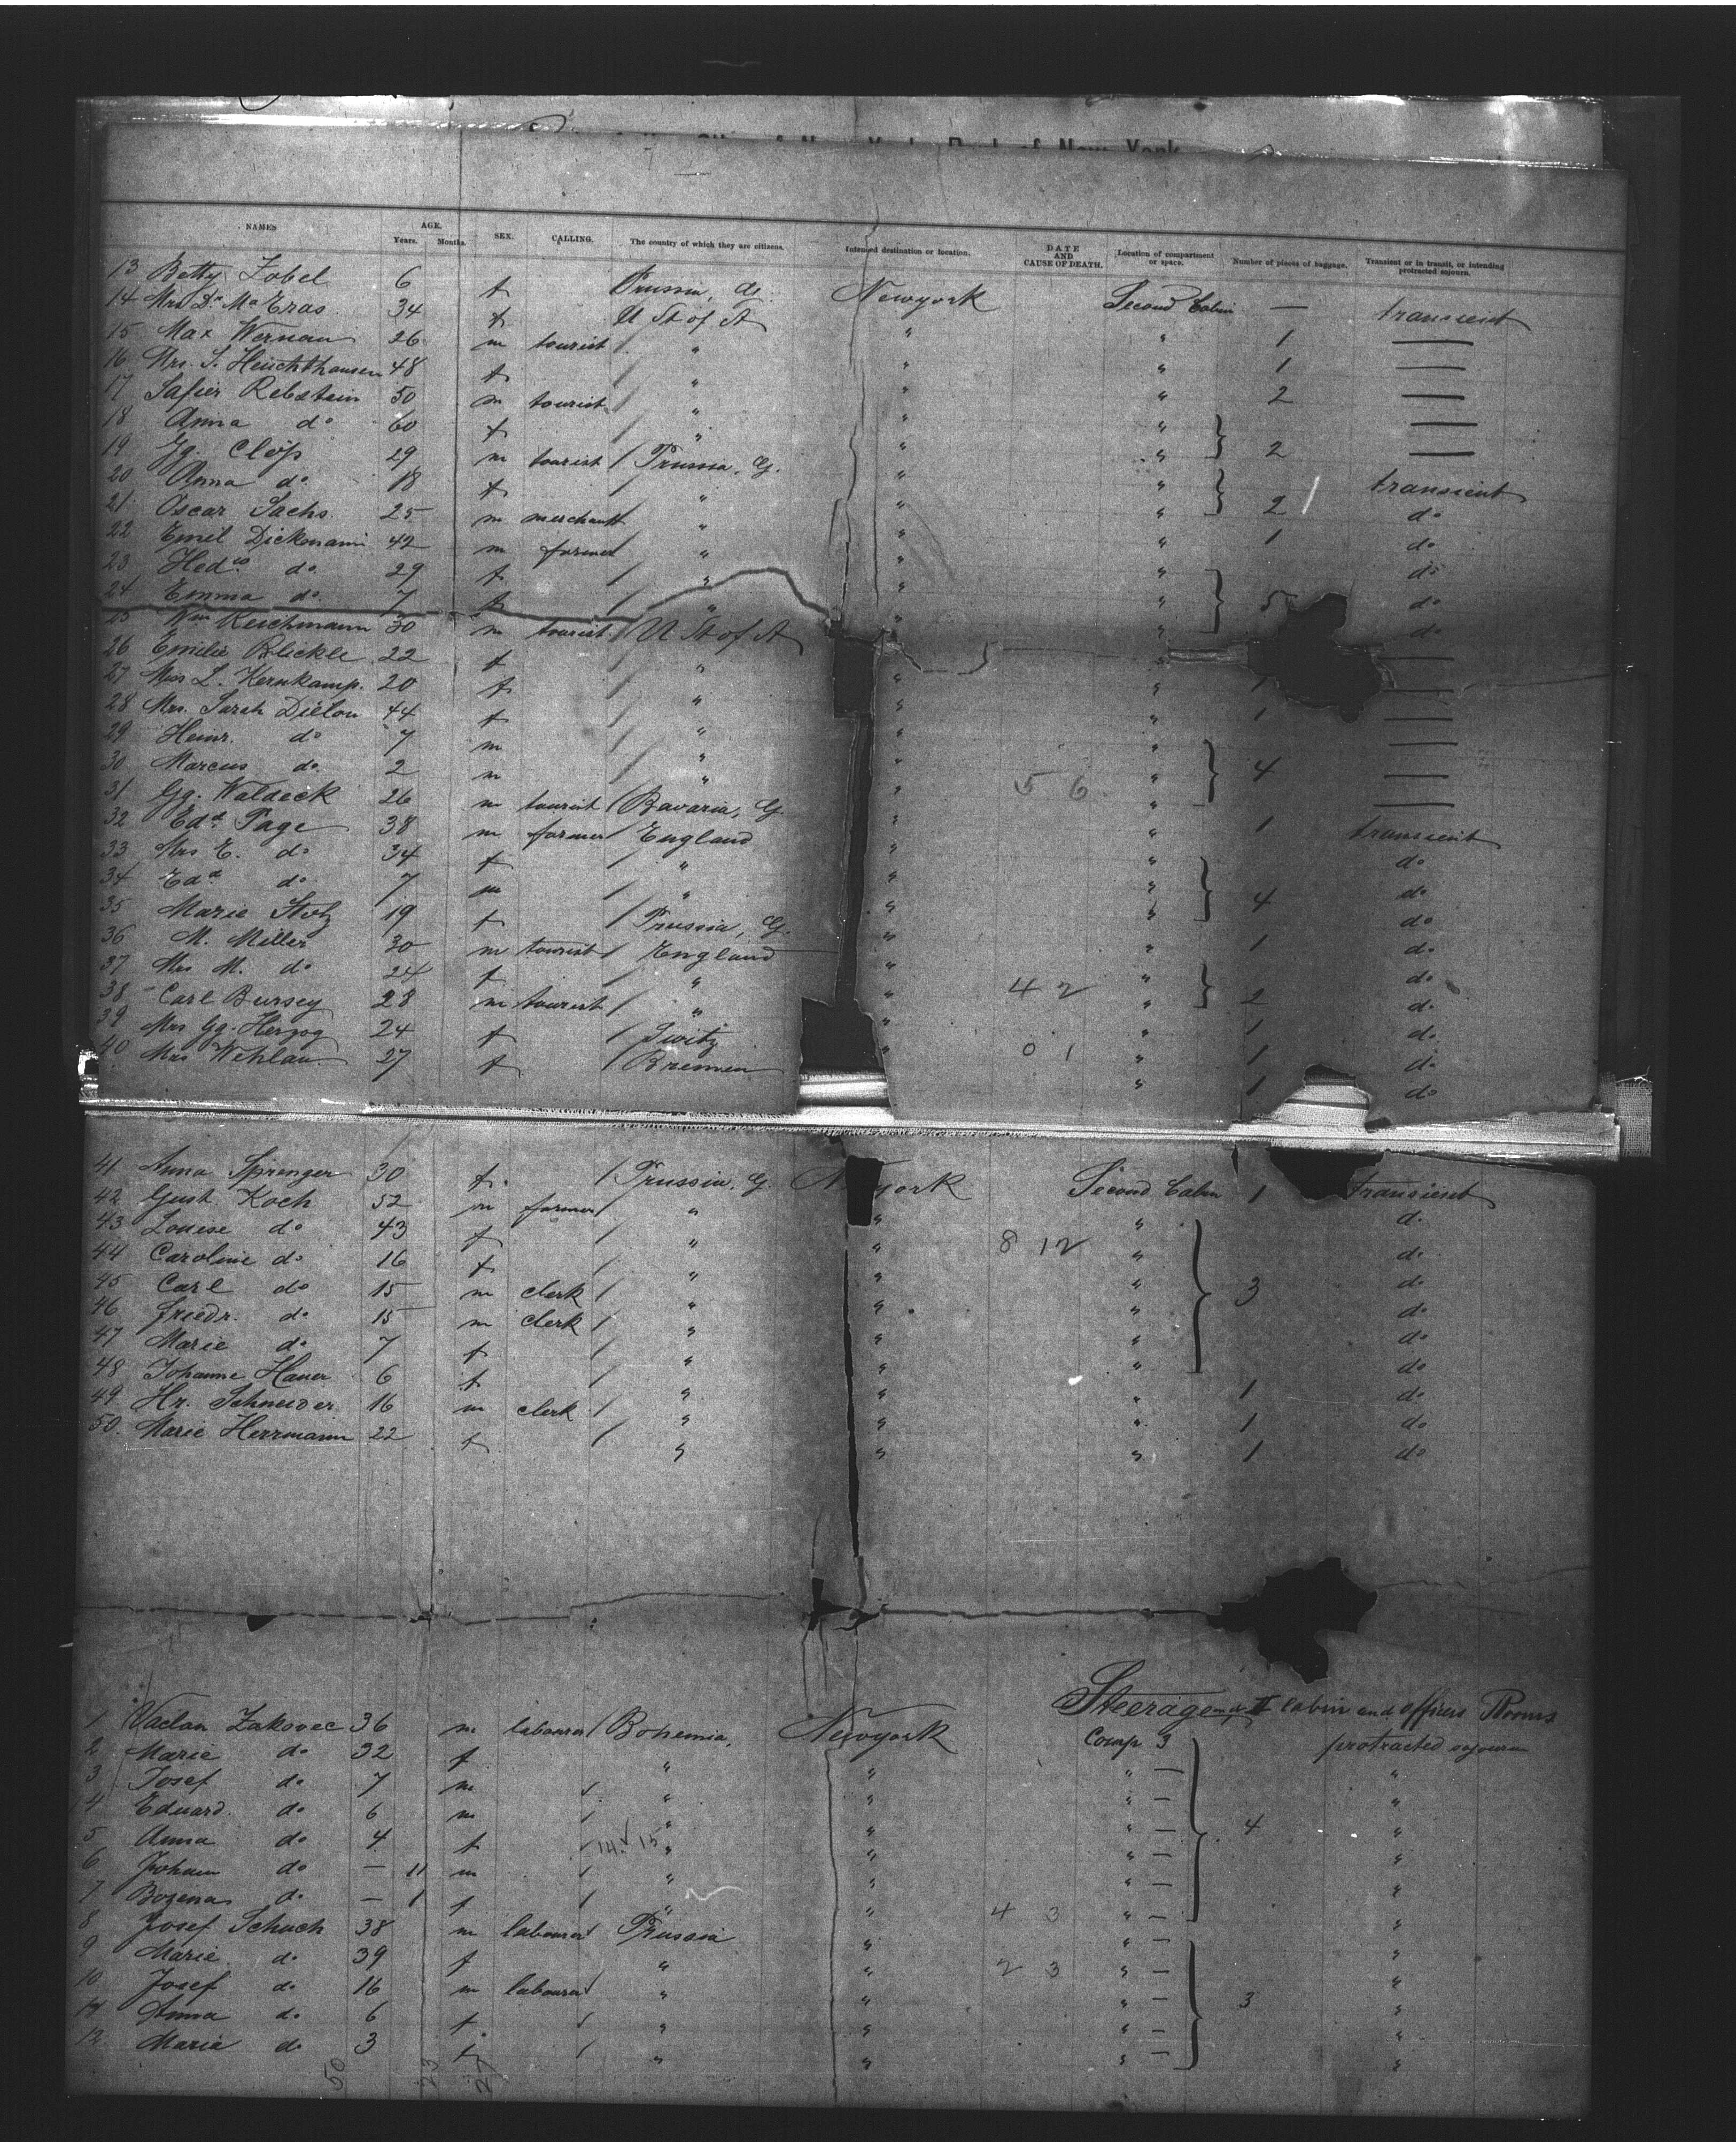 NAMES AGE. Years. Months. SEX. CALLING. The country of which they are citizens. Intended destination or location. DATE AND CAUSE OF DEATH. Location of compartment or space. Number of pieces of baggage. Transient or in transit, or intending protracted sojourn.
13 Betty Zobel 6 f Prussia, G. Newyork Second Cabin — transient
14 Mrs Dr Ma Eras 34 f U St of A " " 1 —
15 Max Wernau 26 m tourist / " " " 1 —
16 Mrs. S. Heuchthausen 48 f / " " " 2 —
17 Safier Rebstein 50 m tourist / " " " —
18 Anna do 60 f / " " " 2 —
19 Gg. Clöss 29 m tourist / Prussia, G. " " transient
20 Anna do. 18 f / " " " 2 do
21 Oscar Sachs. 25 m merchant " " " 1 do
22 Emil Dickmann 42 m farmer " " " do
23 Hedw do. 29 f / " " " 5 do
24 Emma do. 7 f / " " " do
25 Wm Reichmann 30 m tourist / U St of A " " —
26 Emilie Blickle 22 f / " " " 1 —
27 Miss L. Kernkamp. 20 f / " " " 1 —
28 Mrs. Sarah Dillon 44 f / " " " —
29 Heinr. do 7 m / " " " 4 —
30 Marcus do. 2 m / " " 5 6 " —
31 Gg. Waldeck 26 m tourist / Bavaria, G. " " 1 transient
32 Edd Page 38 m farmer / England " " do
33 Mrs E. do 34 f / " " " 4 do
34 Edd do. 7 m / " " " do
35 Marie Stotz 19 f / Prussia, G. " " 1 do
36 M. Miller 30 m tourist / England " " do
37 Mrs M. do 24 f / " " 4 2 " 2 do
38 Carl Bursey 28 m tourist / " " " 1 do
39 Mrs Gg. Herzog 24 f / Switz " 0 1 " 1 do
40 Mrs Wehlau 27 f / Bremen " " 1 do
41 Anna Sprenger 30 f. / Prussia. G. Second Cabin 1 transient
42 Gust. Koch 52 m farmer / " " " d.
43 Louise do 43 f / " " 8 12 " do
44 Caroline do 16 f / " " " do
45 Carl do 15 m clerk / " " " 3 do
46 Friedr. do. 15 m clerk / " " " do
47 Marie do. 7 f / " " " do
48 Johanne Hauer 6 f / " " " 1 do
49 Hr. Schneider 16 m clerk / " " " 1 do
50. Marie Herrmann 22 f / " " " 1 do
Steerage and II cabin and officers Rooms
1 Vaclav Zakovec 36 m labourer / Bohemia, Newyork Comp 3 protracted sojourn
2 Marie do. 32 f " " " — "
3 Josef do. 7 m / " " " — "
4 Eduard. do 6 m / " " " — 4 "
5 Anna do 4 f / 14. 15 " " " — "
6 Johann do — 11 m / " " " — "
7 Bozena do — 1 f / " " 4 3 " — "
8 Josef Schuch 38 m labourer Prussia " " — "
9 Marie do. 39 f " " 2 3 " — "
10 Josef do. 16 m labourer " " " — 3 "
11 Anna do. 6 f / " " " — "
12 Marie do 3 f / " " " — "
50 23 27